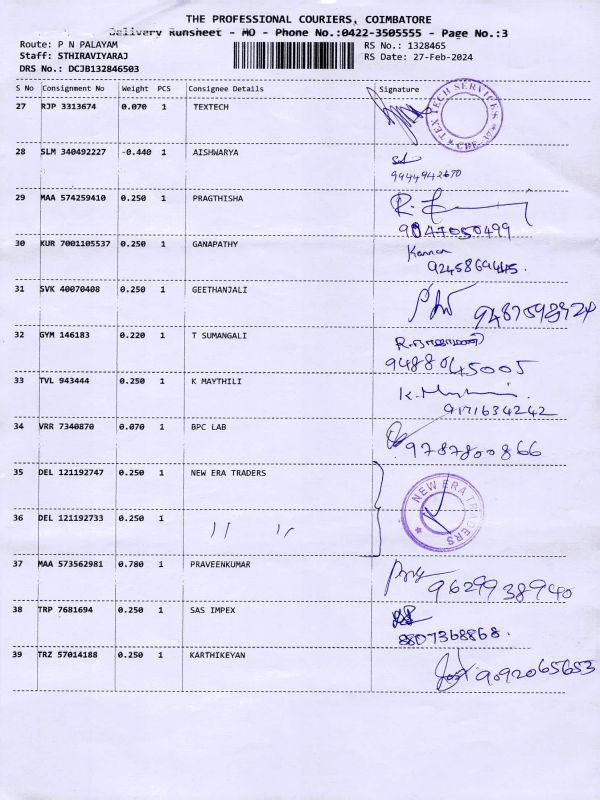 THE PROFESSIONAL COURIERS, COIMBATORE
Delivery Runsheet - MO - Phone No.:0422-3505555 - Page No.:3
Route: P N PALAYAM
RS No.: 1328465
Staff: STHIRAVIYARAJ
RS Date: 27-Feb-2024
DRS No.: DCJB132846503
S No Consignment No Weight PCS Consignee Details Signature
27 RJP 3313674 0.070 1 TEXTECH
TEX TECH SERVICES CBE
28 SLM 340492227 -0.440 1 AISHWARYA
9944942670
29 MAA 574259410 0.250 1 PRAGTHISHA
9047050499
30 KUR 7001105537 0.250 1 GANAPATHY
Kannan
31 SVK 40070408 0.250 1 GEETHANJALI
32 GYM 146183 0.220 1 T SUMANGALI
9488045005
33 TVL 943444 0.250 1 K MAYTHILI
9171634242
34 VRR 7340870 0.070 1 BPC LAB
9787800866
35 DEL 121192747 0.250 1 NEW ERA TRADERS
NEW ERA TRADERS
36 DEL 121192733 0.250 1 〃 〃
37 MAA 573562981 0.780 1 PRAVEENKUMAR
9629938940
38 TRP 7681694 0.250 1 SAS IMPEX
8807368868.
39 TRZ 57014188 0.250 1 KARTHIKEYAN
9092065653